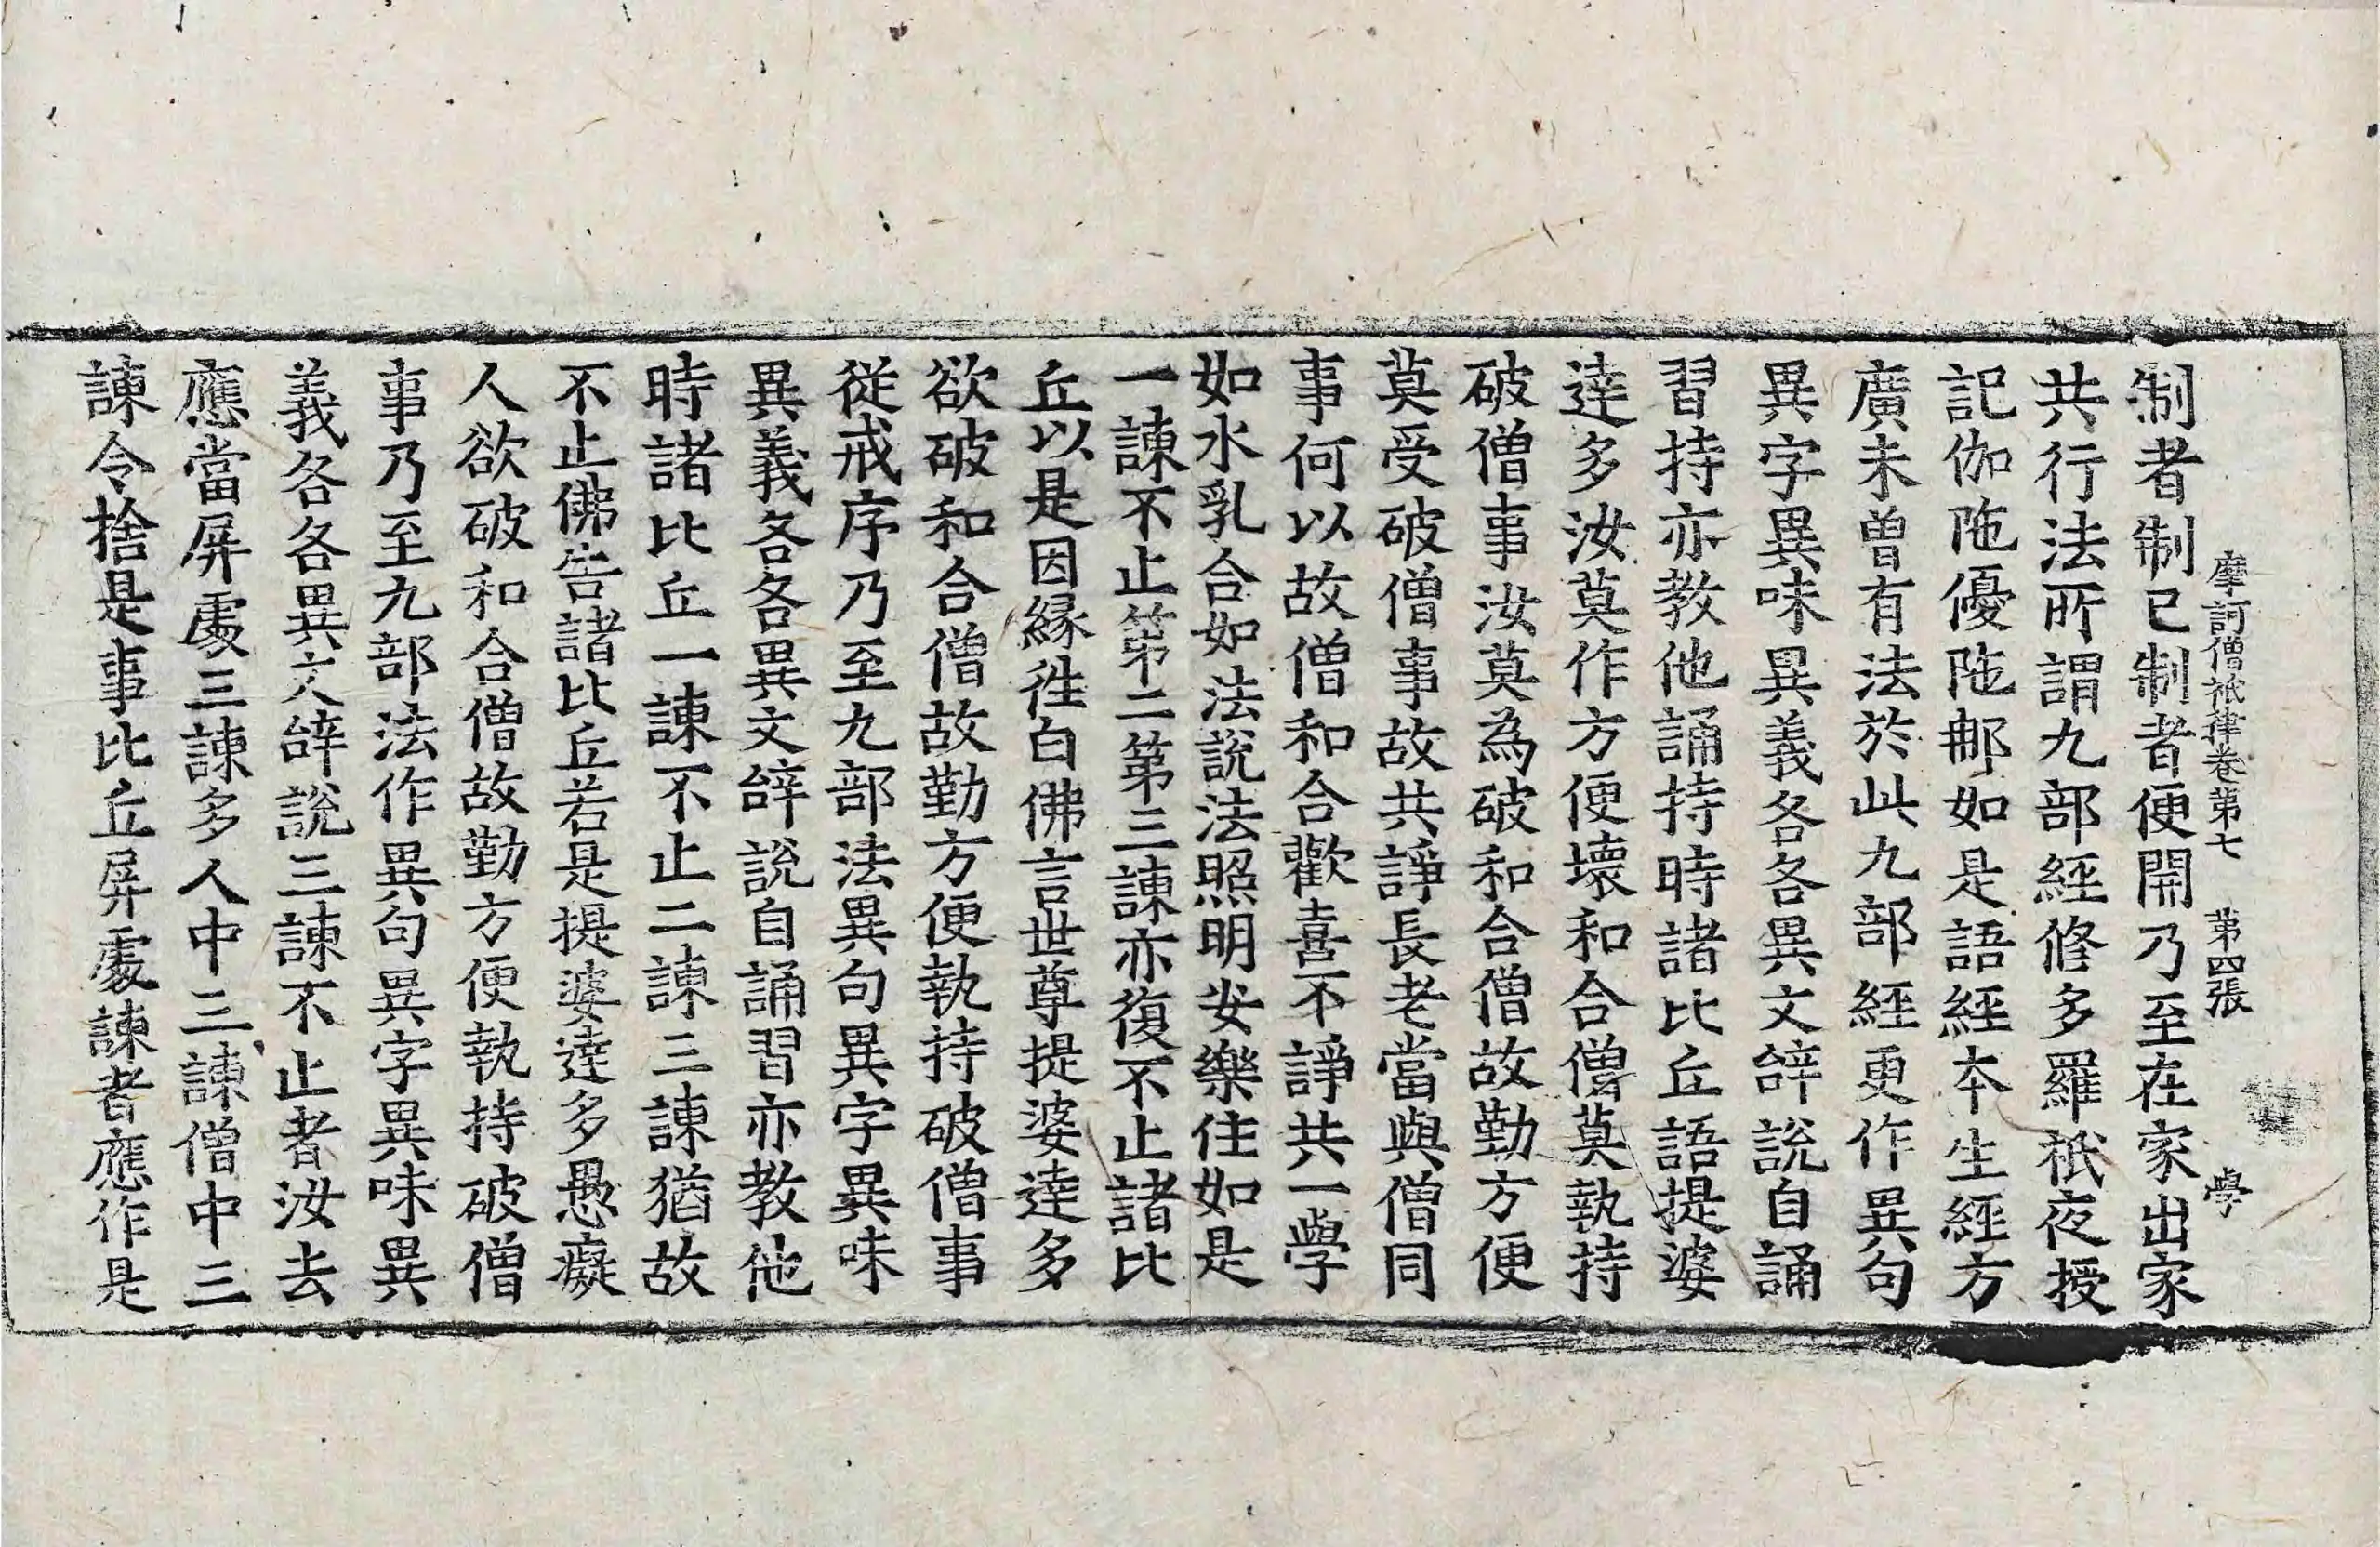 摩訶僧祇律卷第七 第四張 學
制者制已制者便開乃至在家出家
共行法所謂九部經修多羅祇夜授
記伽陁優陁那如是語經本生經方
廣未曽有法於此九部經更作異句
異字異味異義各各異文辝說自誦
習持亦教他誦持時諸比丘語提婆
達多汝莫作方便壞和合僧莫執持
破僧事汝莫為破和合僧故勤方便
莫受破僧事故共諍長老當與僧同
事何以故僧和合歡喜不諍共一學
如水乳合如法說法照明安樂住如是
一諫不止第二第三諫亦復不止諸比
丘以是因緣往白佛言世尊提婆達多
欲破和合僧故勤方便執持破僧事
從戒序乃至九部法異句異字異味
異義各各異文辝說自誦習亦教他
時諸比丘一諫不止二諫三諫猶故
不止佛告諸比丘若是提婆達多愚癡
人欲破和合僧故勤方便執持破僧
事乃至九部法作異句異字異味異
義各各異文辝說三諫不止者汝去
應當屏處三諫多人中三諫僧中三
諫令捨是事比丘屏處諫者應作是